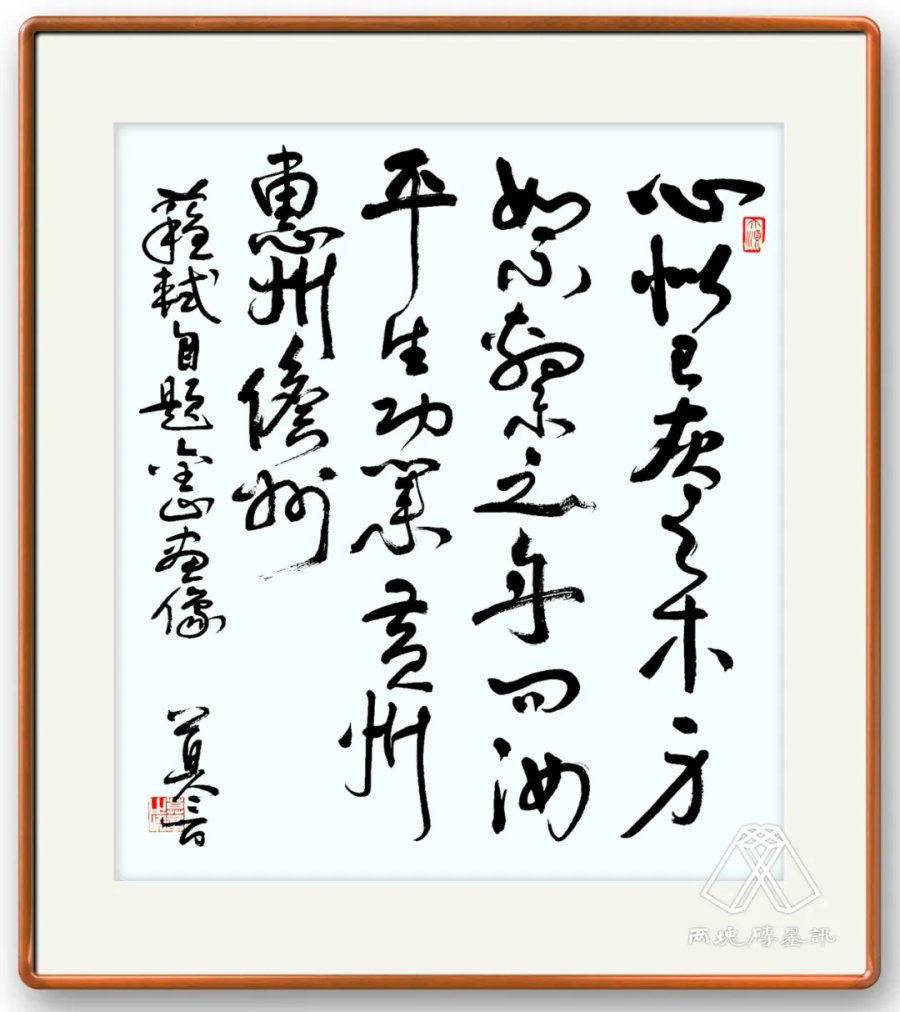 心似已灰之木身
如不繫之舟問汝
平生功業黄州
惠州儋州
蘇軾自題金山畫像
莫言
两塊磚墨訊